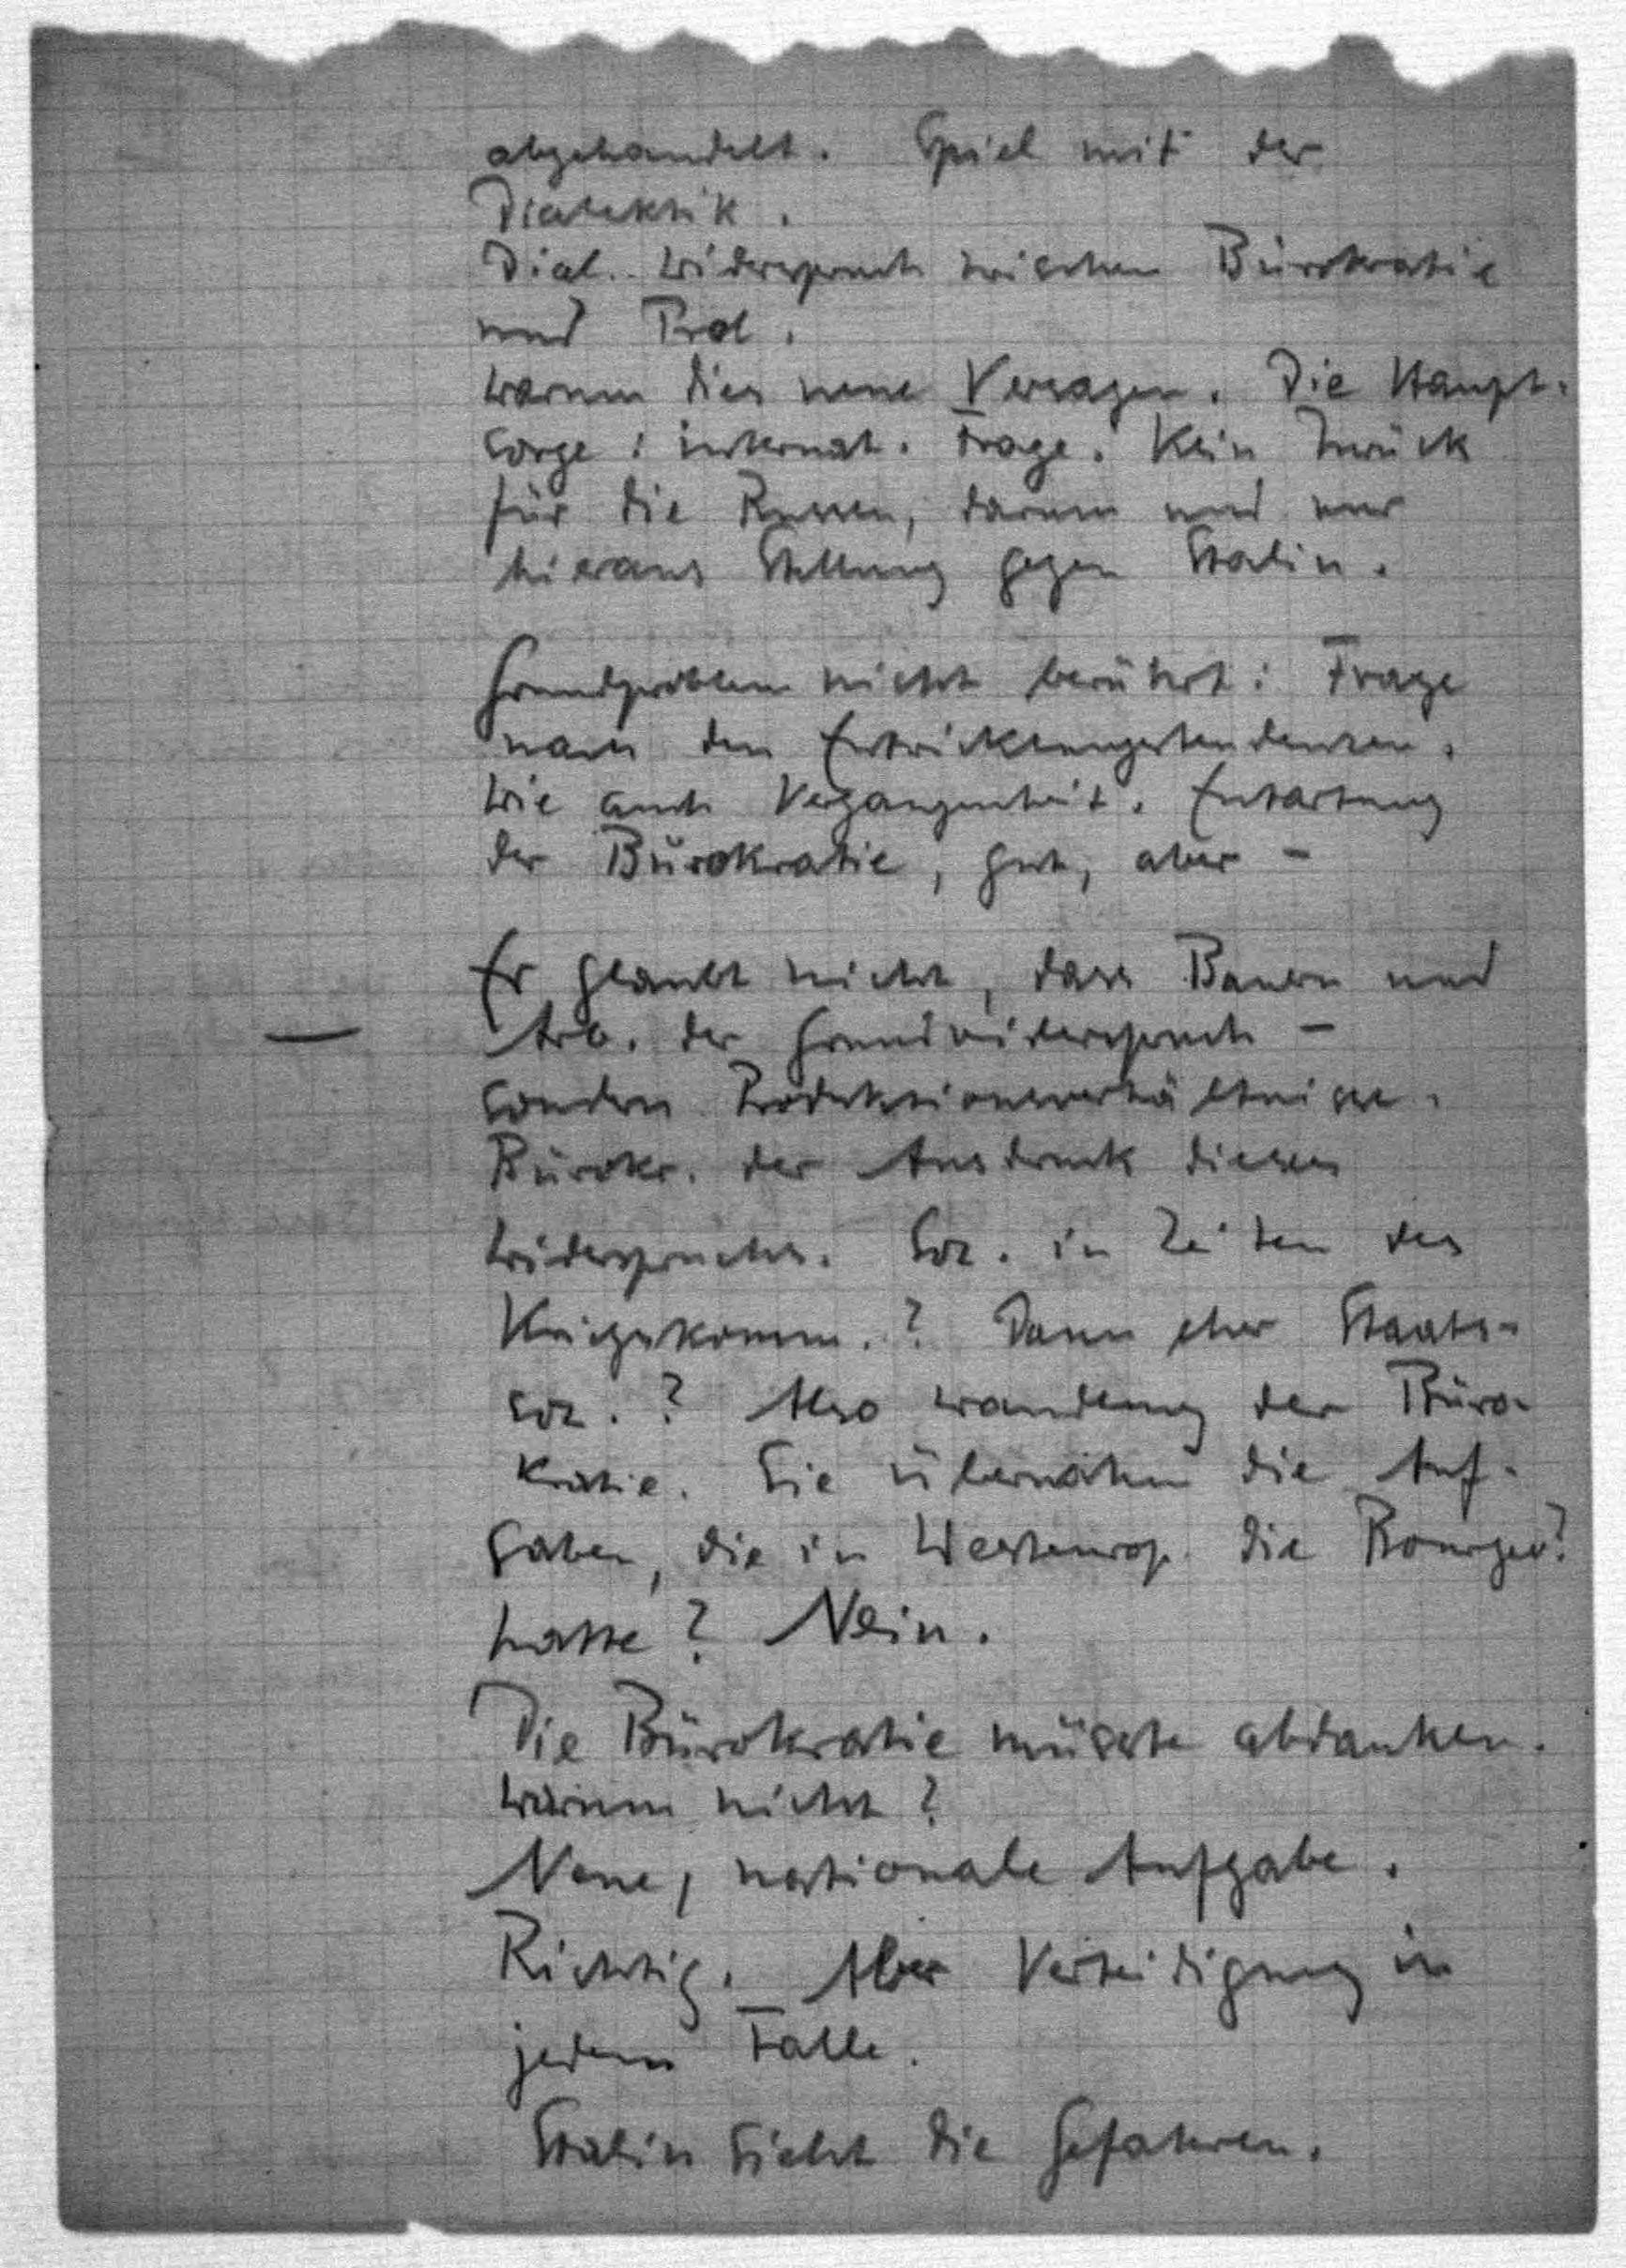 abgehandelt. Spiel mit der
Dialektik.
Dial. Widerspruch zwischen Bürokratie
und Prol.
Warum dies neue Versagen. Die Haupt-
sorge: internat. Frage. Kein Zurück
für die Russen, darum und nur
hieraus Stellung gegen Stalin.
Grundproblem nicht berührt: Frage
nach den Entwicklungstendenzen.
Wie auch Vergangenheit. Entartung
der Bürokratie, gut, aber –
Er glaubt nicht, dass Bauern und
– Arb. der Grundwiderspruch –
sondern Produktionsverhältnisse.
Bürokr. der Ausdruck dieses
Widerspruchs. Soz. in Zeiten des
Kriegskomm.? Dann eher Staats-
soz.? Also Wandlung der Büro-
kratie. Sie übernahm die Auf-
gaben, die in Westeurop. die Bourgeo.
hatte? Nein.
Die Bürokratie müsste abdanken.
Warum nicht?
Neue, nationale Aufgabe.
Richtig. Aber Verteidigung in
jedem Falle.
Stalin sieht die Gefahren.